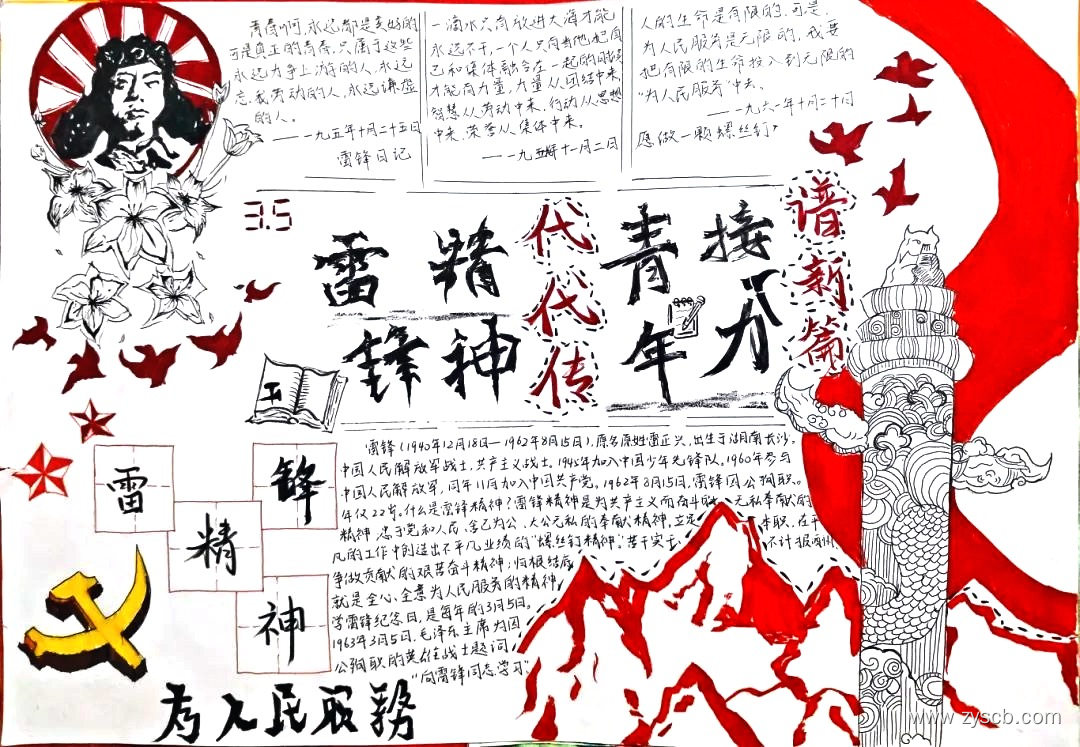 青春啊,永远都是美好的
可是真正的青春,只属于这些
永远力争上游的人,永远
忘我劳动的人,永远谦虚
的人。
——一九五年十月二十五日
雷锋日记
一滴水只有放进大海才能
永远不干,一个人只有当他把自
己和集体融合在一起的时候
才能有力量,力量从团结中来,
智慧从劳动中来,行动从思想
中来,荣誉从集体中来。
——一九五十一月二日
人的生命是有限的,可是,
为人民服务是无限的,我要
把有限的生命投入到无限的
“为人民服务”中去。
——一九六一年十月二十日
愿做一颗螺丝钉
3.5
雷锋
精神
代代传
青年
接力
谱新篇
雷锋(1940年12月18日—1962年8月15日),原名原姓雷正兴,出生于湖南长沙,
中国人民解放军战士,共产主义战士。1945年加入中国少年先锋队。1960年参与
中国人民解放军,同年11月加入中国共产党。1962年8月15日,雷锋因公殉职。
年仅22岁。什么是雷锋精神?雷锋精神是为共产主义而奋斗 无私奉献的
精神,忠于党和人民、舍己为公、大公无私的奉献精神,立足 本职、在平
凡的工作中创造出不平凡业绩的“螺丝钉精神”。苦干实干 不计报酬
争做贡献的艰苦奋斗精神;归根结底
就是全心全意为人民服务的精神
学雷锋纪念日,是每年的3月5日。
1963年3月5日,毛泽东主席为因
公殉职的英雄战士题词
“向雷锋同志学习”
雷
锋
精
神
为人民服务
www.zyscb.com